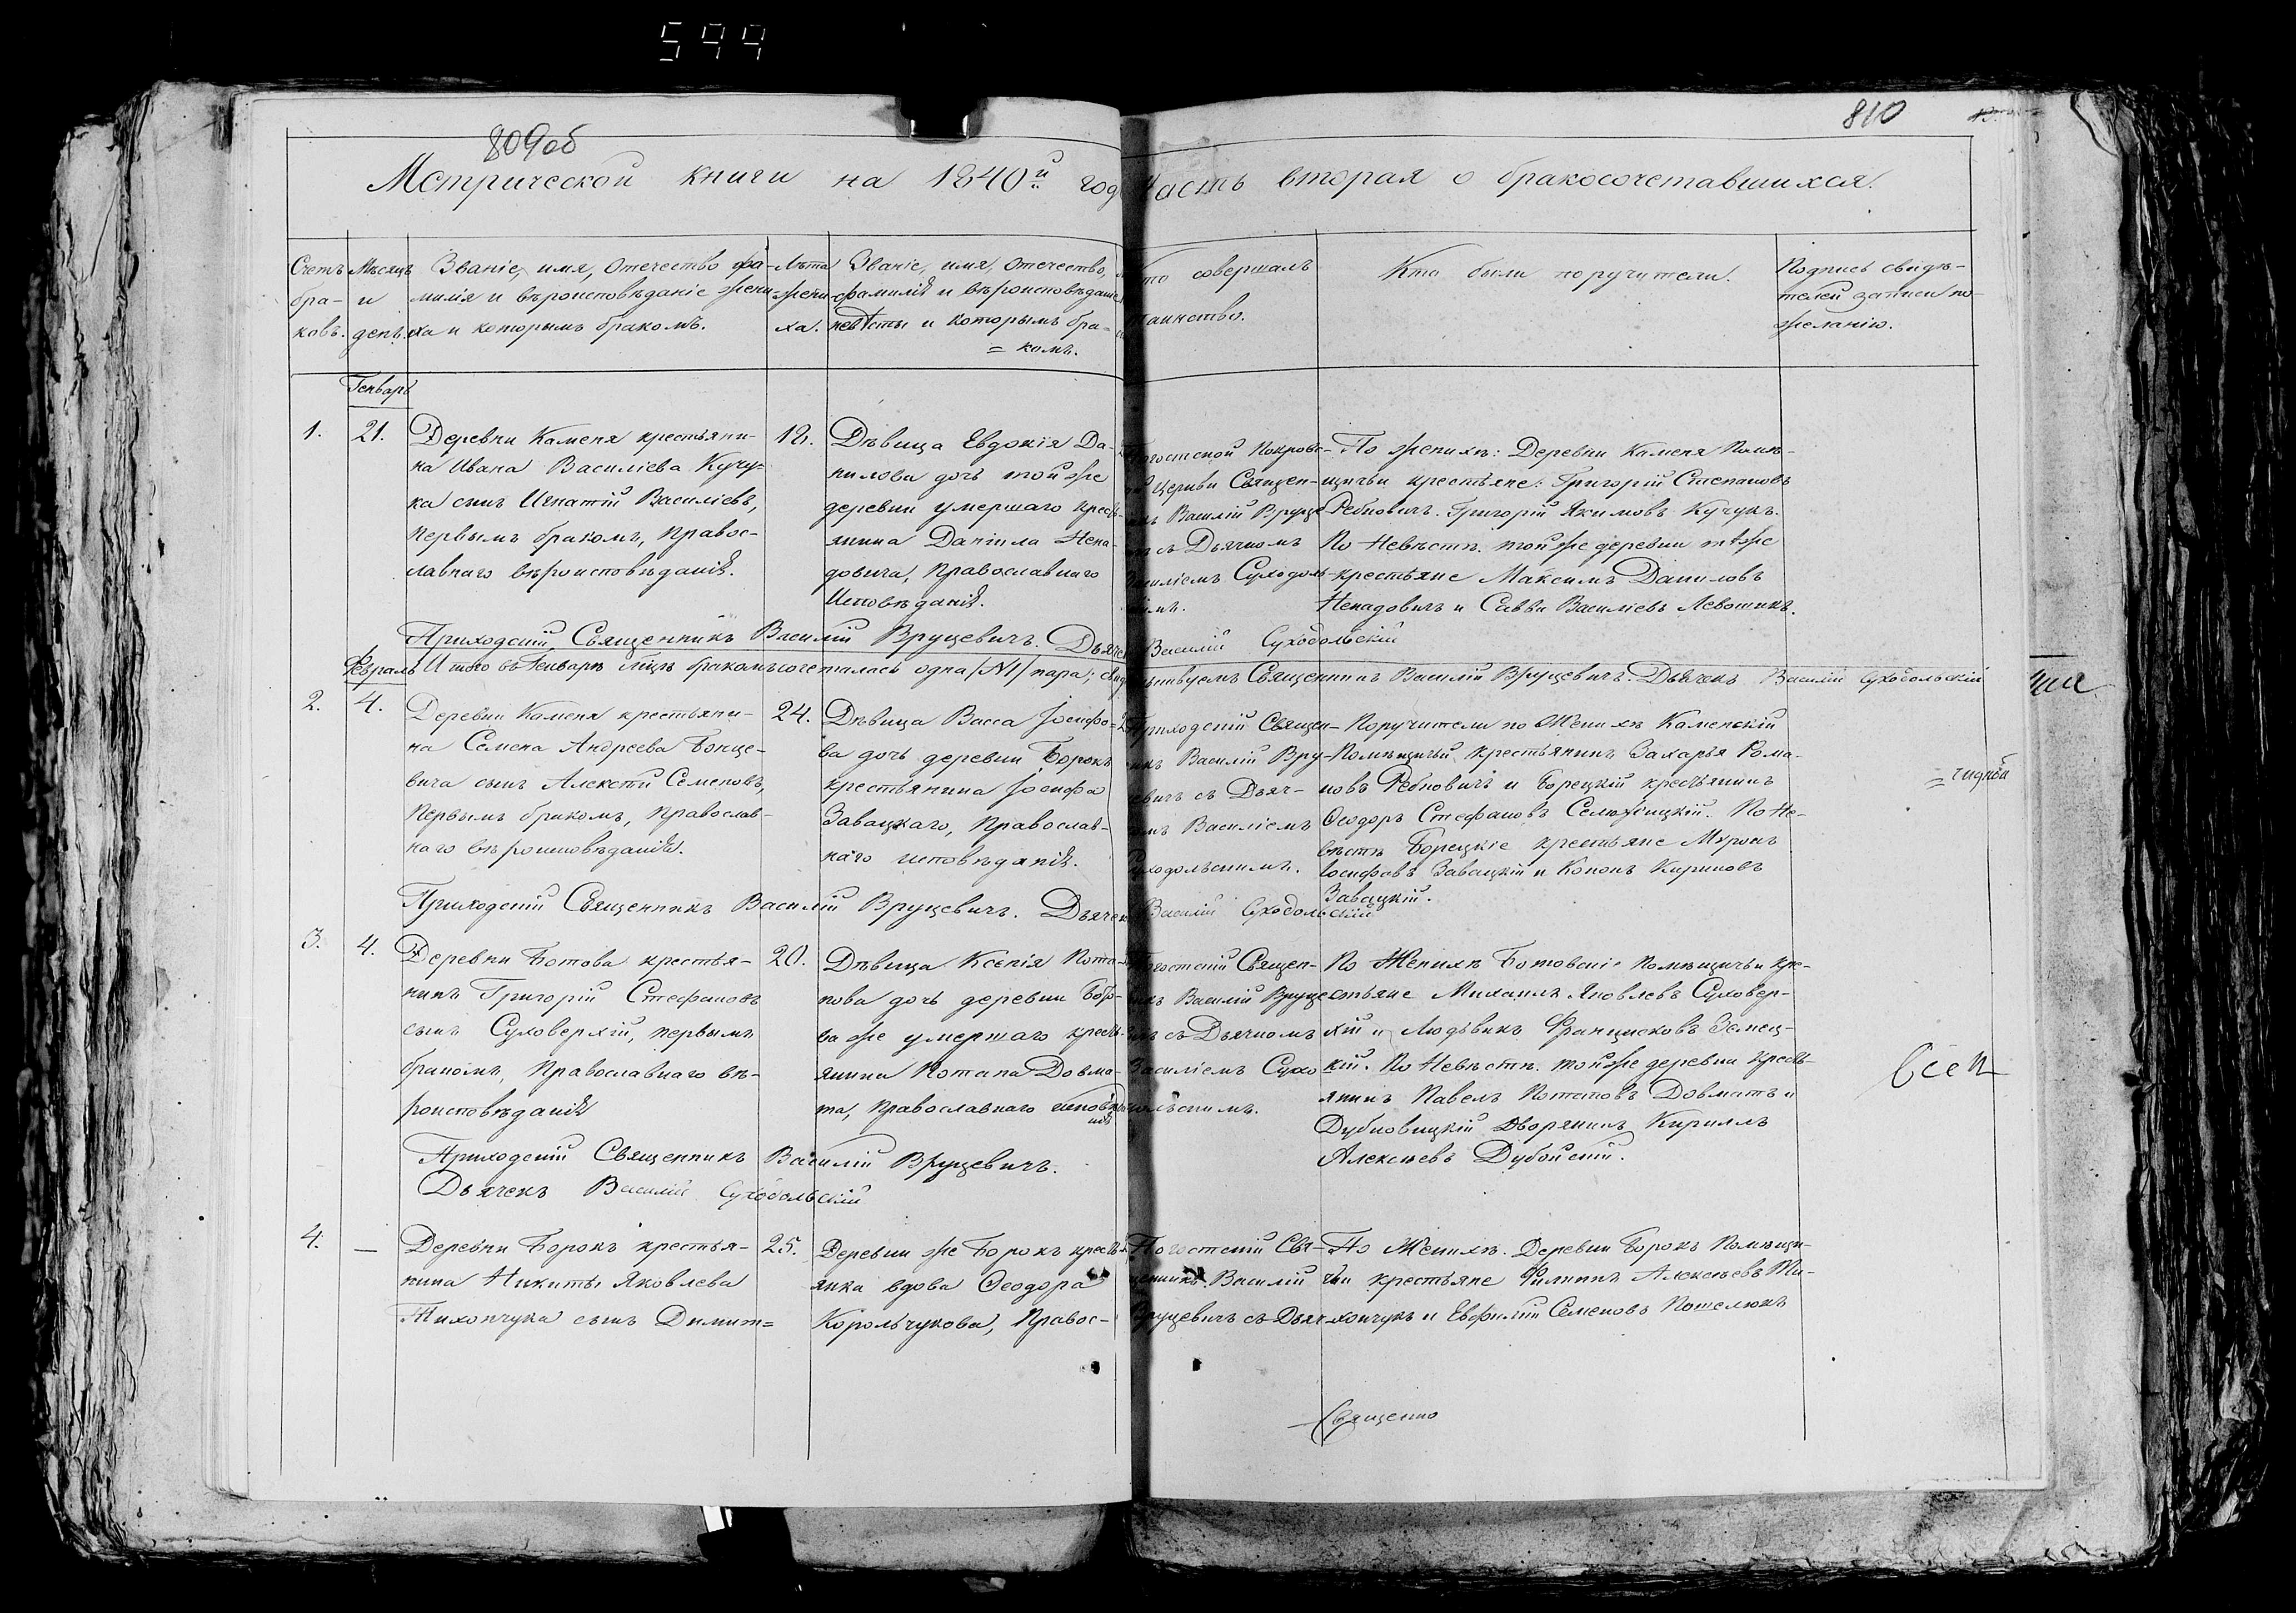 544
809об
810
Метрической книги на 1840й год
Часть вторая о бракосочетавшихся.
Счетъ бра-
ковъ.
Мѣсяцъ
и
день.
Званіе, имя, Отечество фа-
милія и вѣроисповѣданіе жени-
ха и которымъ бракомъ.
Лѣта
жени-
ха.
Званіе, имя, Отечество,
фамилія и вѣроисповѣданіе
невѣсты и которымъ бра-
= комъ.
то совершалъ
таинство.
Кто были поручители.
Подпись свидѣ-
телей записи по
желанію.
Генварь
1.
21.
Деревни Каменя крестьяни-
на Ивана Василіева Кучу-
ка сынъ Игнатій Василіевъ,
Первымъ бракомъ, Правос-
лавнаго вѣроисповѣданія.
18.
Дѣвица Евдокія Да-
нилова дочь той же
деревни умершаго крестъ-
янина Даніила Нена-
довича, Православнаго
Исповѣданія.
Погостской Покровс-
й Церкви Священ-
къ Василій Вруце
ъ съ Дьячкомъ
Василіемъ Суходоль-
имъ.
По женихѣ: Деревни Каменя Помѣ-
щичьи крестьяне: Григорій Степановъ
Рабковичъ. Григорій Якимовъ Кучукъ.
По Невѣстѣ. той же деревни тѣже
крестьяне Максимъ Даниловъ
Ненадовичъ и Савва Василіевъ Левошикъ.
Приходскій Священникъ Василій Вруцевичъ. Дьячекъ Василій Суходольскій
Февраль
Итого въ Генварѣ м͠цѣ бракомъ сочеталась одна /№1/ пара; свидѣтельствуемъ Священникъ Василій Вруцевичъ. Дьячекъ Василій Суходольскій
2.
4.
Деревни Каменя крестьяни-
на Семена Андреева Бонце-
вича сынъ Алексѣй Семеновъ,
Первымъ бракомъ, Православ-
наго вѣроисповѣданія.
24.
Дѣвица Васса Іосифо-
ва дочь деревни Борокъ
крестьянина Іосифа
Завацкаго, Православ-
наго исповѣданія.
Приходскій Священ-
икъ Василій Вру-
евичъ съ Дьяч-
омъ Василіемъ
Суходольскимъ.
Поручители по Женихѣ Каменскій
Помѣщичьй крестьянинъ Захарья Рома-
новъ Рабковичъ и Борецкій крестьянинъ
Ѳеодоръ Стефановъ Селюжицкій. По Не-
вѣстѣ Борецкіе крестьяне Миронъ
Іосифовъ Завацкій и Кононъ Кириковъ
Завацкій.
Приходскій Священникъ Василій Вруцевичъ. Дьячекъ Василій Суходольскій
3.
4.
Деревни Ботова крестья-
нинъ Григорій Стефановъ
сынъ Суховерхій, первымъ
бракомъ, Православнаго вѣ-
роисповѣданія
20.
Дѣвица Ксенія Пота-
пова дочь деревни Бото-
ва же умершаго крестъ-
янина Потапа Довма-
та, Православнаго исповѣда
нія
Погостскій Священ-
икъ Василій Вруце
ичъ съ Дьячкомъ
Василіемъ Сухо
дольскимъ.
По Женихѣ Ботовскіе Помѣщичьи кре-
стьяне Михаилъ Яковлевъ Суховер-
хій и Людвикъ Францисковъ Земец-
кій. По Невѣстѣ. той же деревни крестъ-
янинъ Павелъ Потаповъ Довматъ и
Дубновицкій Дворянинъ Кириллъ
Алексѣевъ Дубойскій.
Приходскій Священникъ Василій Вруцевичъ.
Дьячекъ Василій Суходольскій
4.
—
Деревни Борокъ крестья-
нина Никиты Яковлева
Тихончука сынъ Димит=
25.
Деревни же Борокъ крестъ-
янка вдова Ѳеодора
Корольчукова, Правос-
Погостскій Свя-
щенникъ Василій
Вруцевичъ съ Дьяч
По Женихѣ. Деревни Борокъ Помѣщи-
чьи крестьяне Филиппъ Алексѣевъ Ти-
хончукъ и Евфимій Семеновъ Потелюкъ
Священно